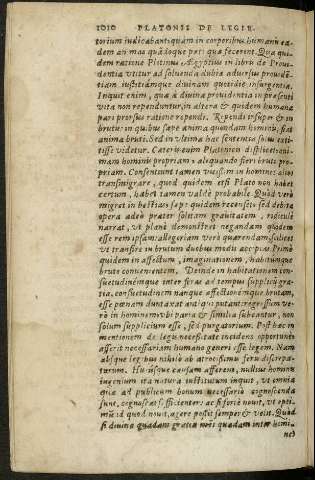 1010 PLATONIS DE LEGIB.
torium iudicabant: quàm in corporibus humanis ea-
dem an mas quãdoque pati quæ fecerint. Qua qui-
dem ratione Plotinus Ægyptius in libro de Proui-
dentia vtitur ad soluenda dubia aduersus prouidẽ-
tiam iustitiámque diuinam quotidie insurgentia.
Inquit enim, quæ à diuina prouidentia in præsenti
vita non rependuntur, in altera & quidem humana
pars prorsus ratione rependi. Rependi insuper & in
brutis: in quibus sæpe anima quondam hominis, fiat
anima bruti. Sed in vltima hac sententia solus exti-
tisse videtur. Cæteris enim Platonicis displicet ani-
mam hominis propriam aliquando fieri bruti pro-
priam. Consentiunt tamen vicissim in homines alios
transmigrare, quod quidem etsi Plato non habet
certum, habet tamen valdè probabile. Quòd verò
migret in bestias sæpe quidem recenset: sed debita
opera adeò præter solitam grauitatem, ridiculè
narrat, vt planè demonstret negandum quidem
esse rem ipsam: allegoriam verò quærendam, scilicet
vt transire in brutum duobus modis accipias. Primò
quidem in affectum, imaginationem, habitúmque
bruto conuenientem. Deinde in habitationem con-
suetudinémque inter feras ad tempus supplicij gra-
tia, consuetudinem nanque affectionémque brutam,
esse pœnam duntaxat aiunt: putant regressum ve-
rò in hominem vbi paria & similia subeantur, non
solum supplicium esse, sed purgatorium. Post hæc in
mentionem de legis necessitate incidens opportunè
asserit necessariam humano generi esse legem. Nam
absque legibus nihilo ab atrocissimis feris discrepa-
turum. Huiúsque causam afferens, nullius hominis
ingenium ita natura institutum inquit, vt omnia
quæ ad publicum bonum necessaria cognoscenda
sunt, cognoscat sufficienter: ac si fortè nouit, vt opti-
mũ id quod nouit, agere possit semper & velit. Quòd
si diuina quadam gratia næs quadam inter homi-
nes